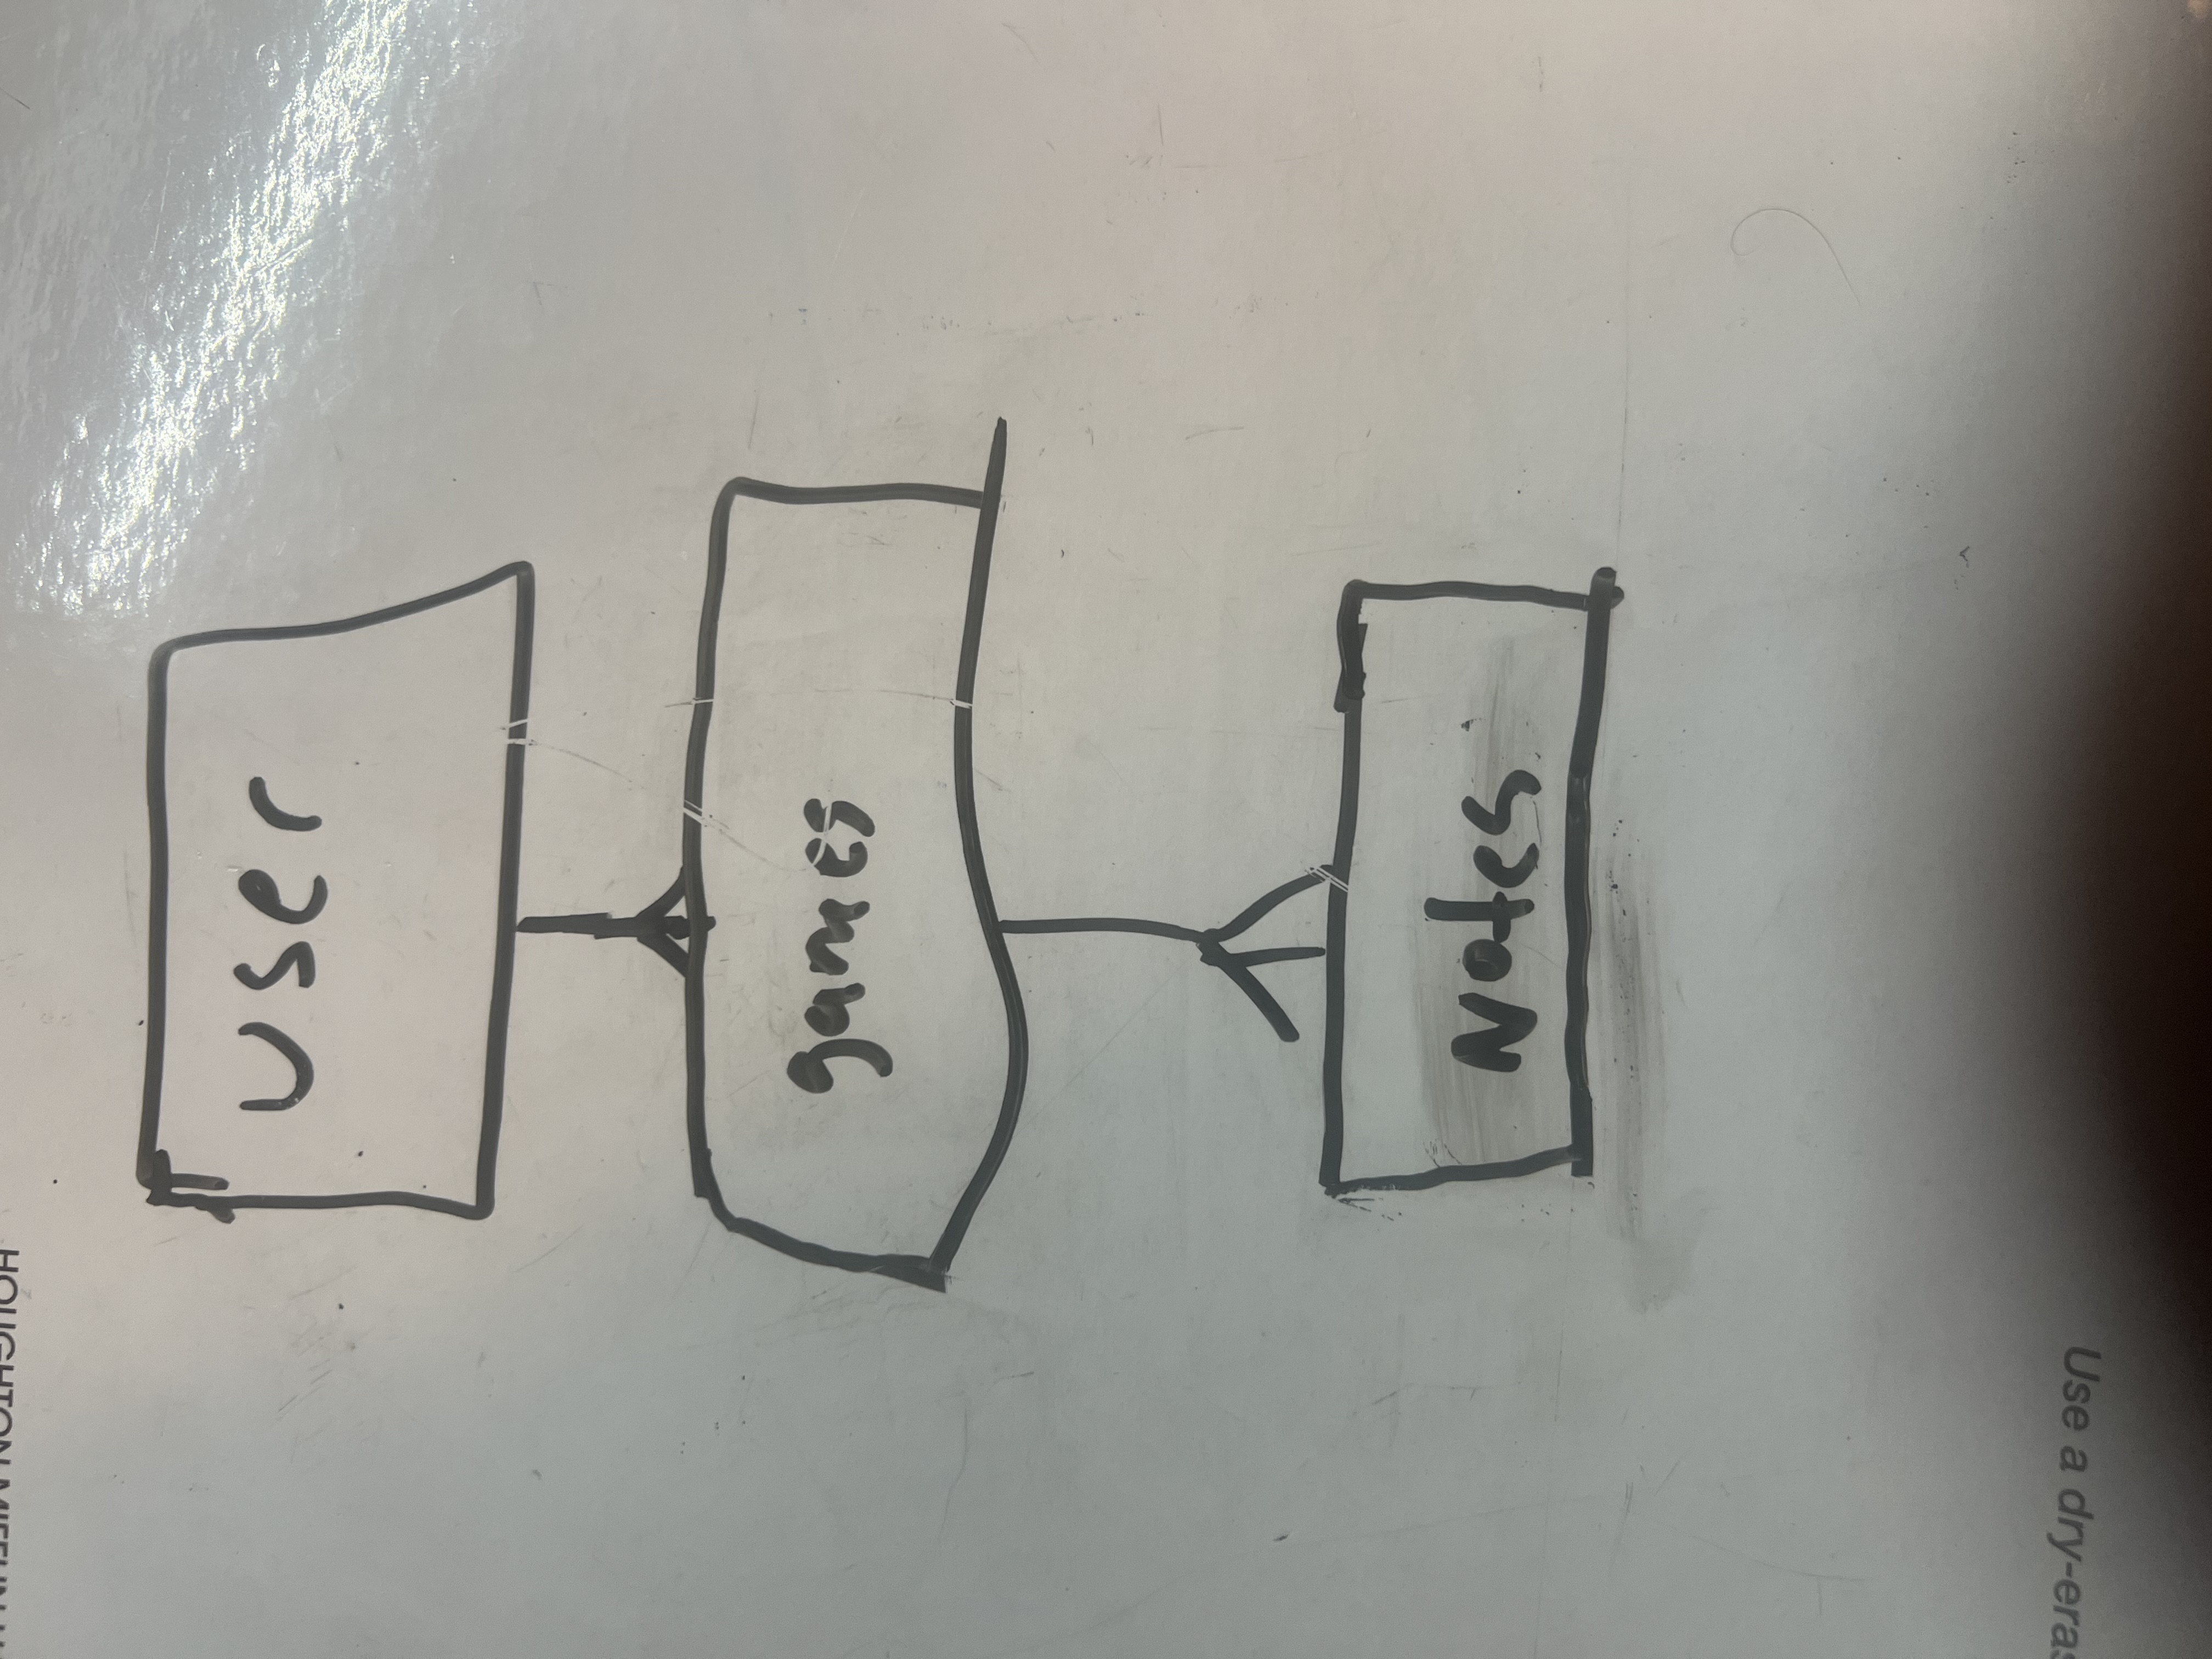 HOUGHTON MIFFLIN
user
games
Notes
Use a dry-eras